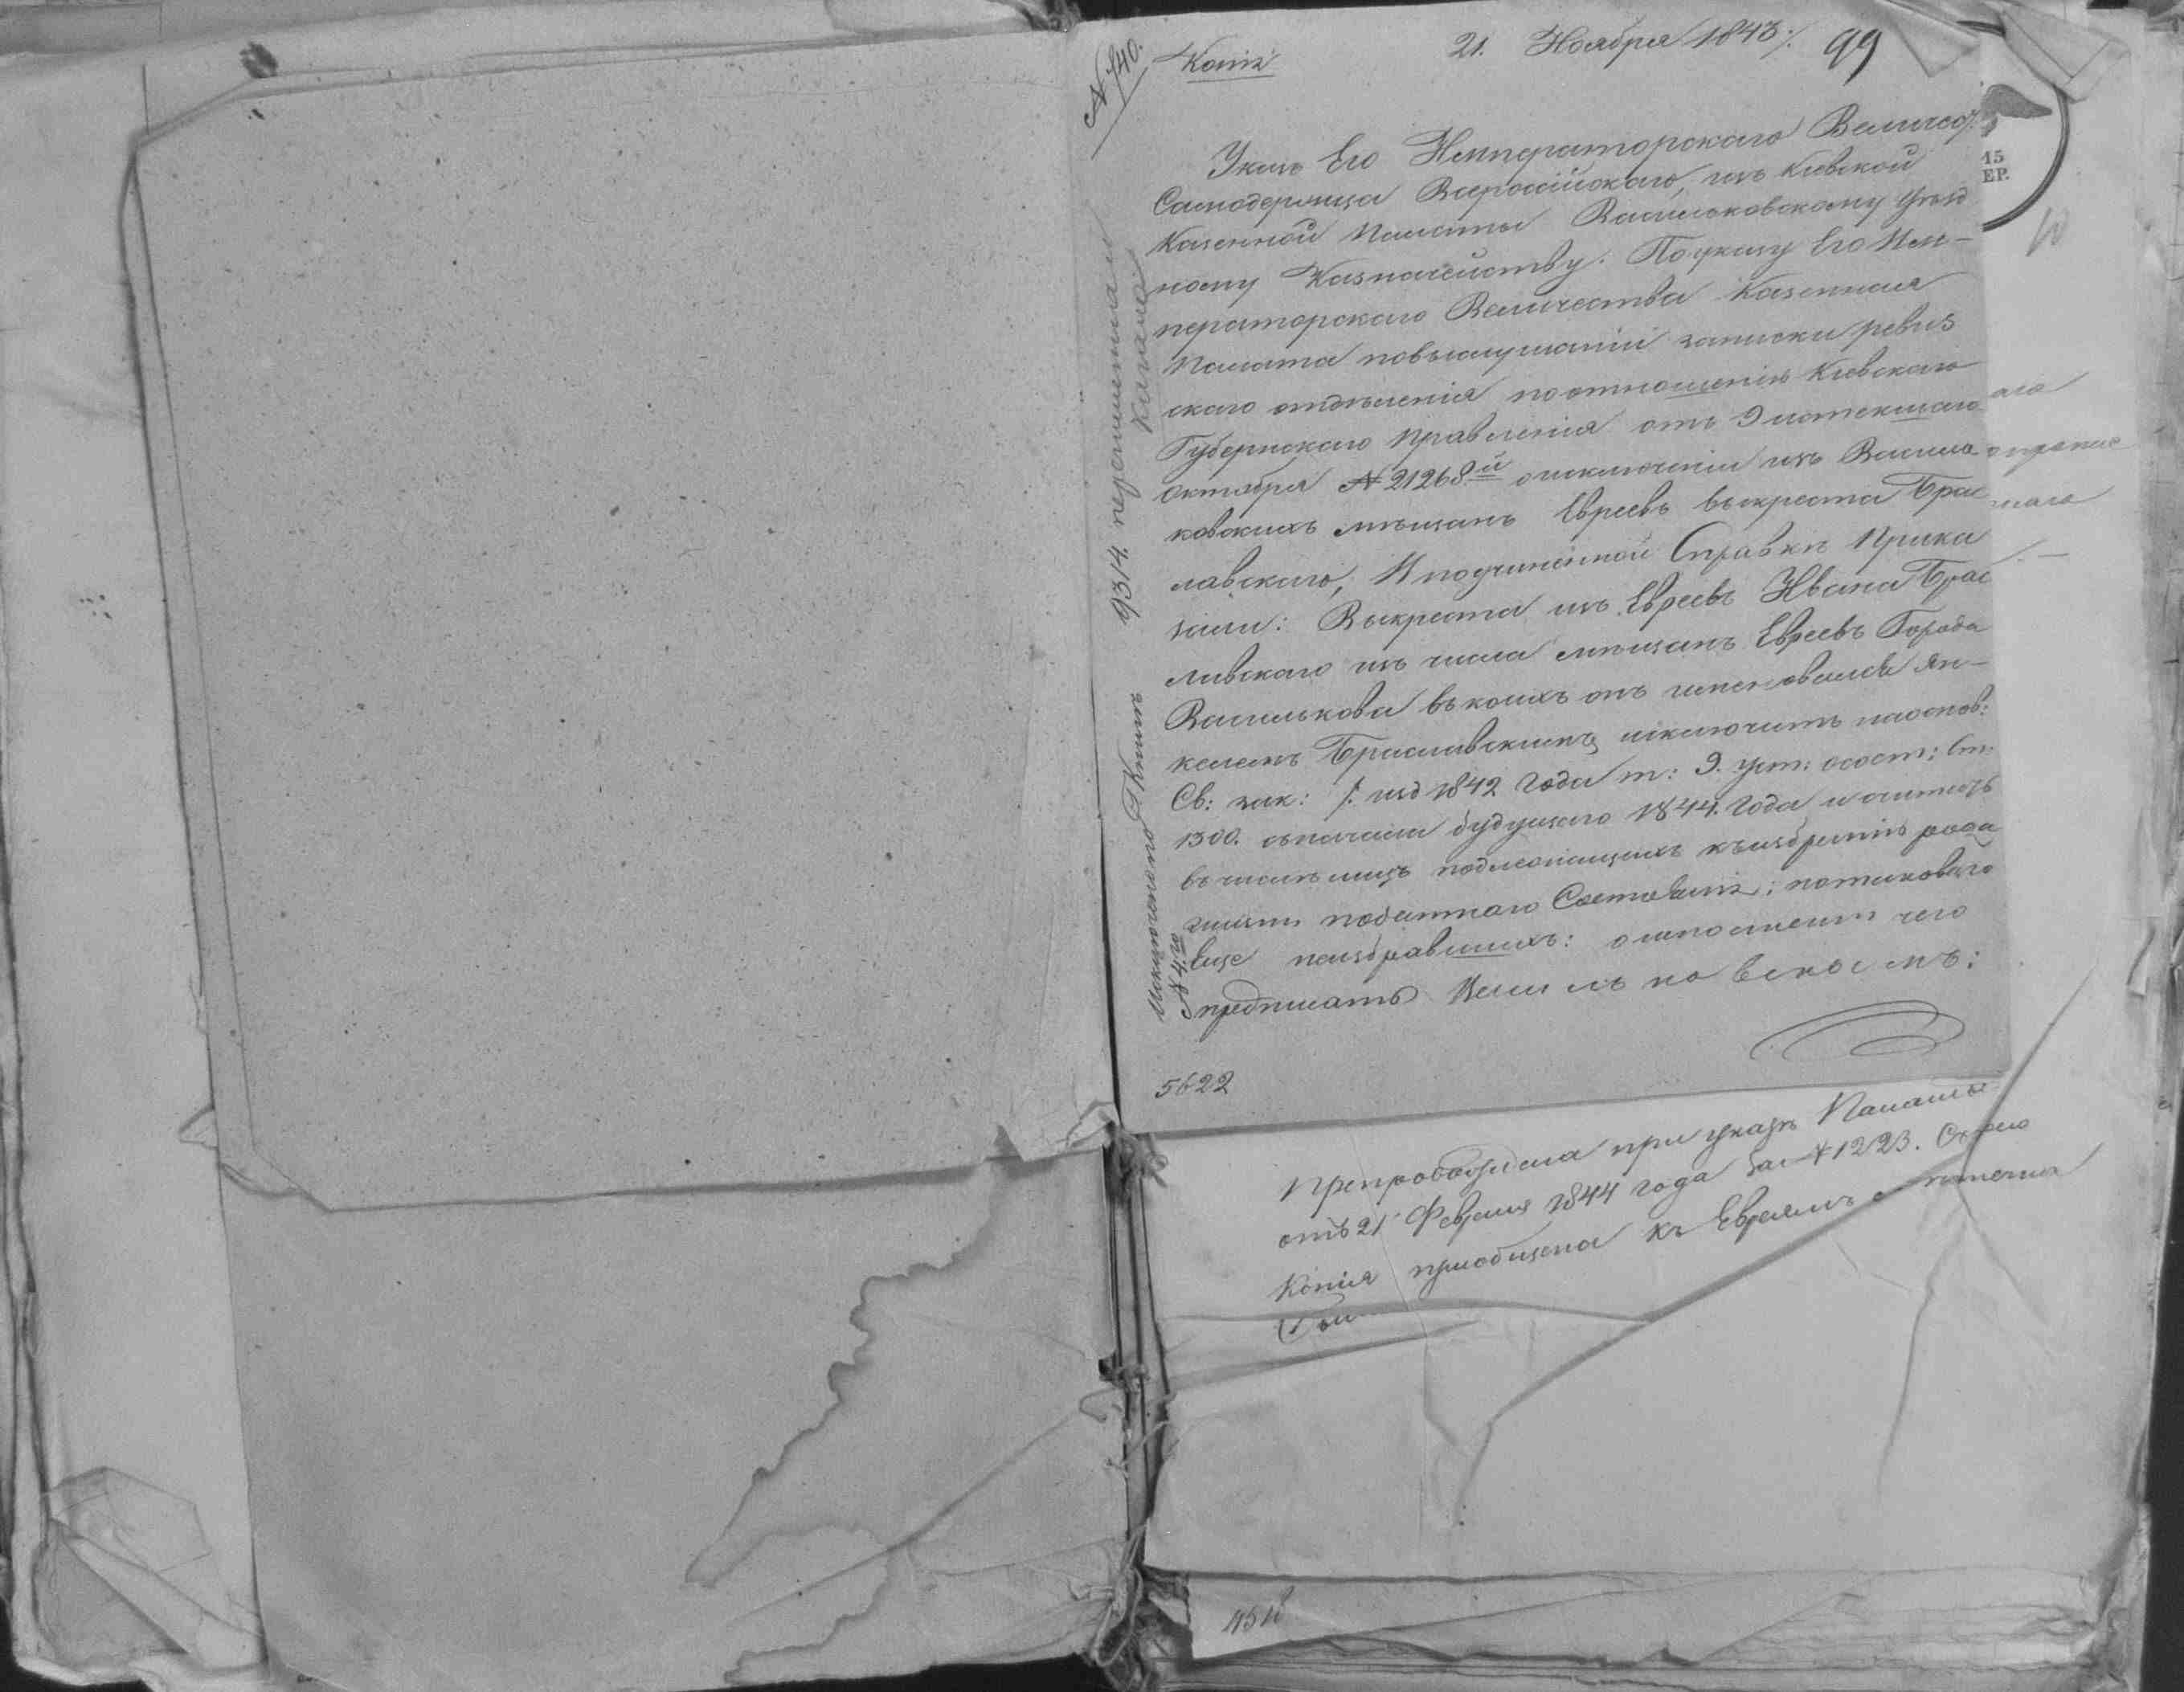 № 740.
Копія
21. Ноября 1843 /. 99
Указъ Его Императорскаго Величес/.
Самодержца Всероссійскаго, изъ Кіевской
Казенной Палаты Васильковскому Уѣзд
ному Казначейству. По указу Его Им-
ператорскаго Величества Казенная
Палата повыслушаніи записки ревиз
скаго отдѣленія поотношенію Кіевскаго
Губернскаго Правленія отъ 9 истекшаго
Октября № 21268й оисключеніи изъ Василь
ковскихъ мѣщанъ Евреевъ выкреста Брас
лавскаго, Ипоучиненной Справкѣ Прика
зали: Выкреста изъ Евреевъ Ивана Брас
лавскаго изъ числа мѣщанъ Евреевъ Города
Василькова въ коихъ онъ именовался Ян-
келемъ Браславскимъ исключить наоснов:
Св: зак: /: изд 1842 года т: 9. уст: осост: ст:
1300. съначала будущаго 1844. года исчитать
въчислѣ лицъ подлежащихъ къизбранію рода
жизни податнаго Состоянія; потаковаго
Еще неизбравшихъ: очемпосмет чего
предписать Васильковском:
5622
Исключено по Книгѣ
№ 4.го
9314. перемѣтилъ
15
ЕР.
10
аго
Препровождена при указѣ Палаты
отъ 21 Февраля 1844 года за № 1223.
Копія приобщена къ Евреямъ
4518